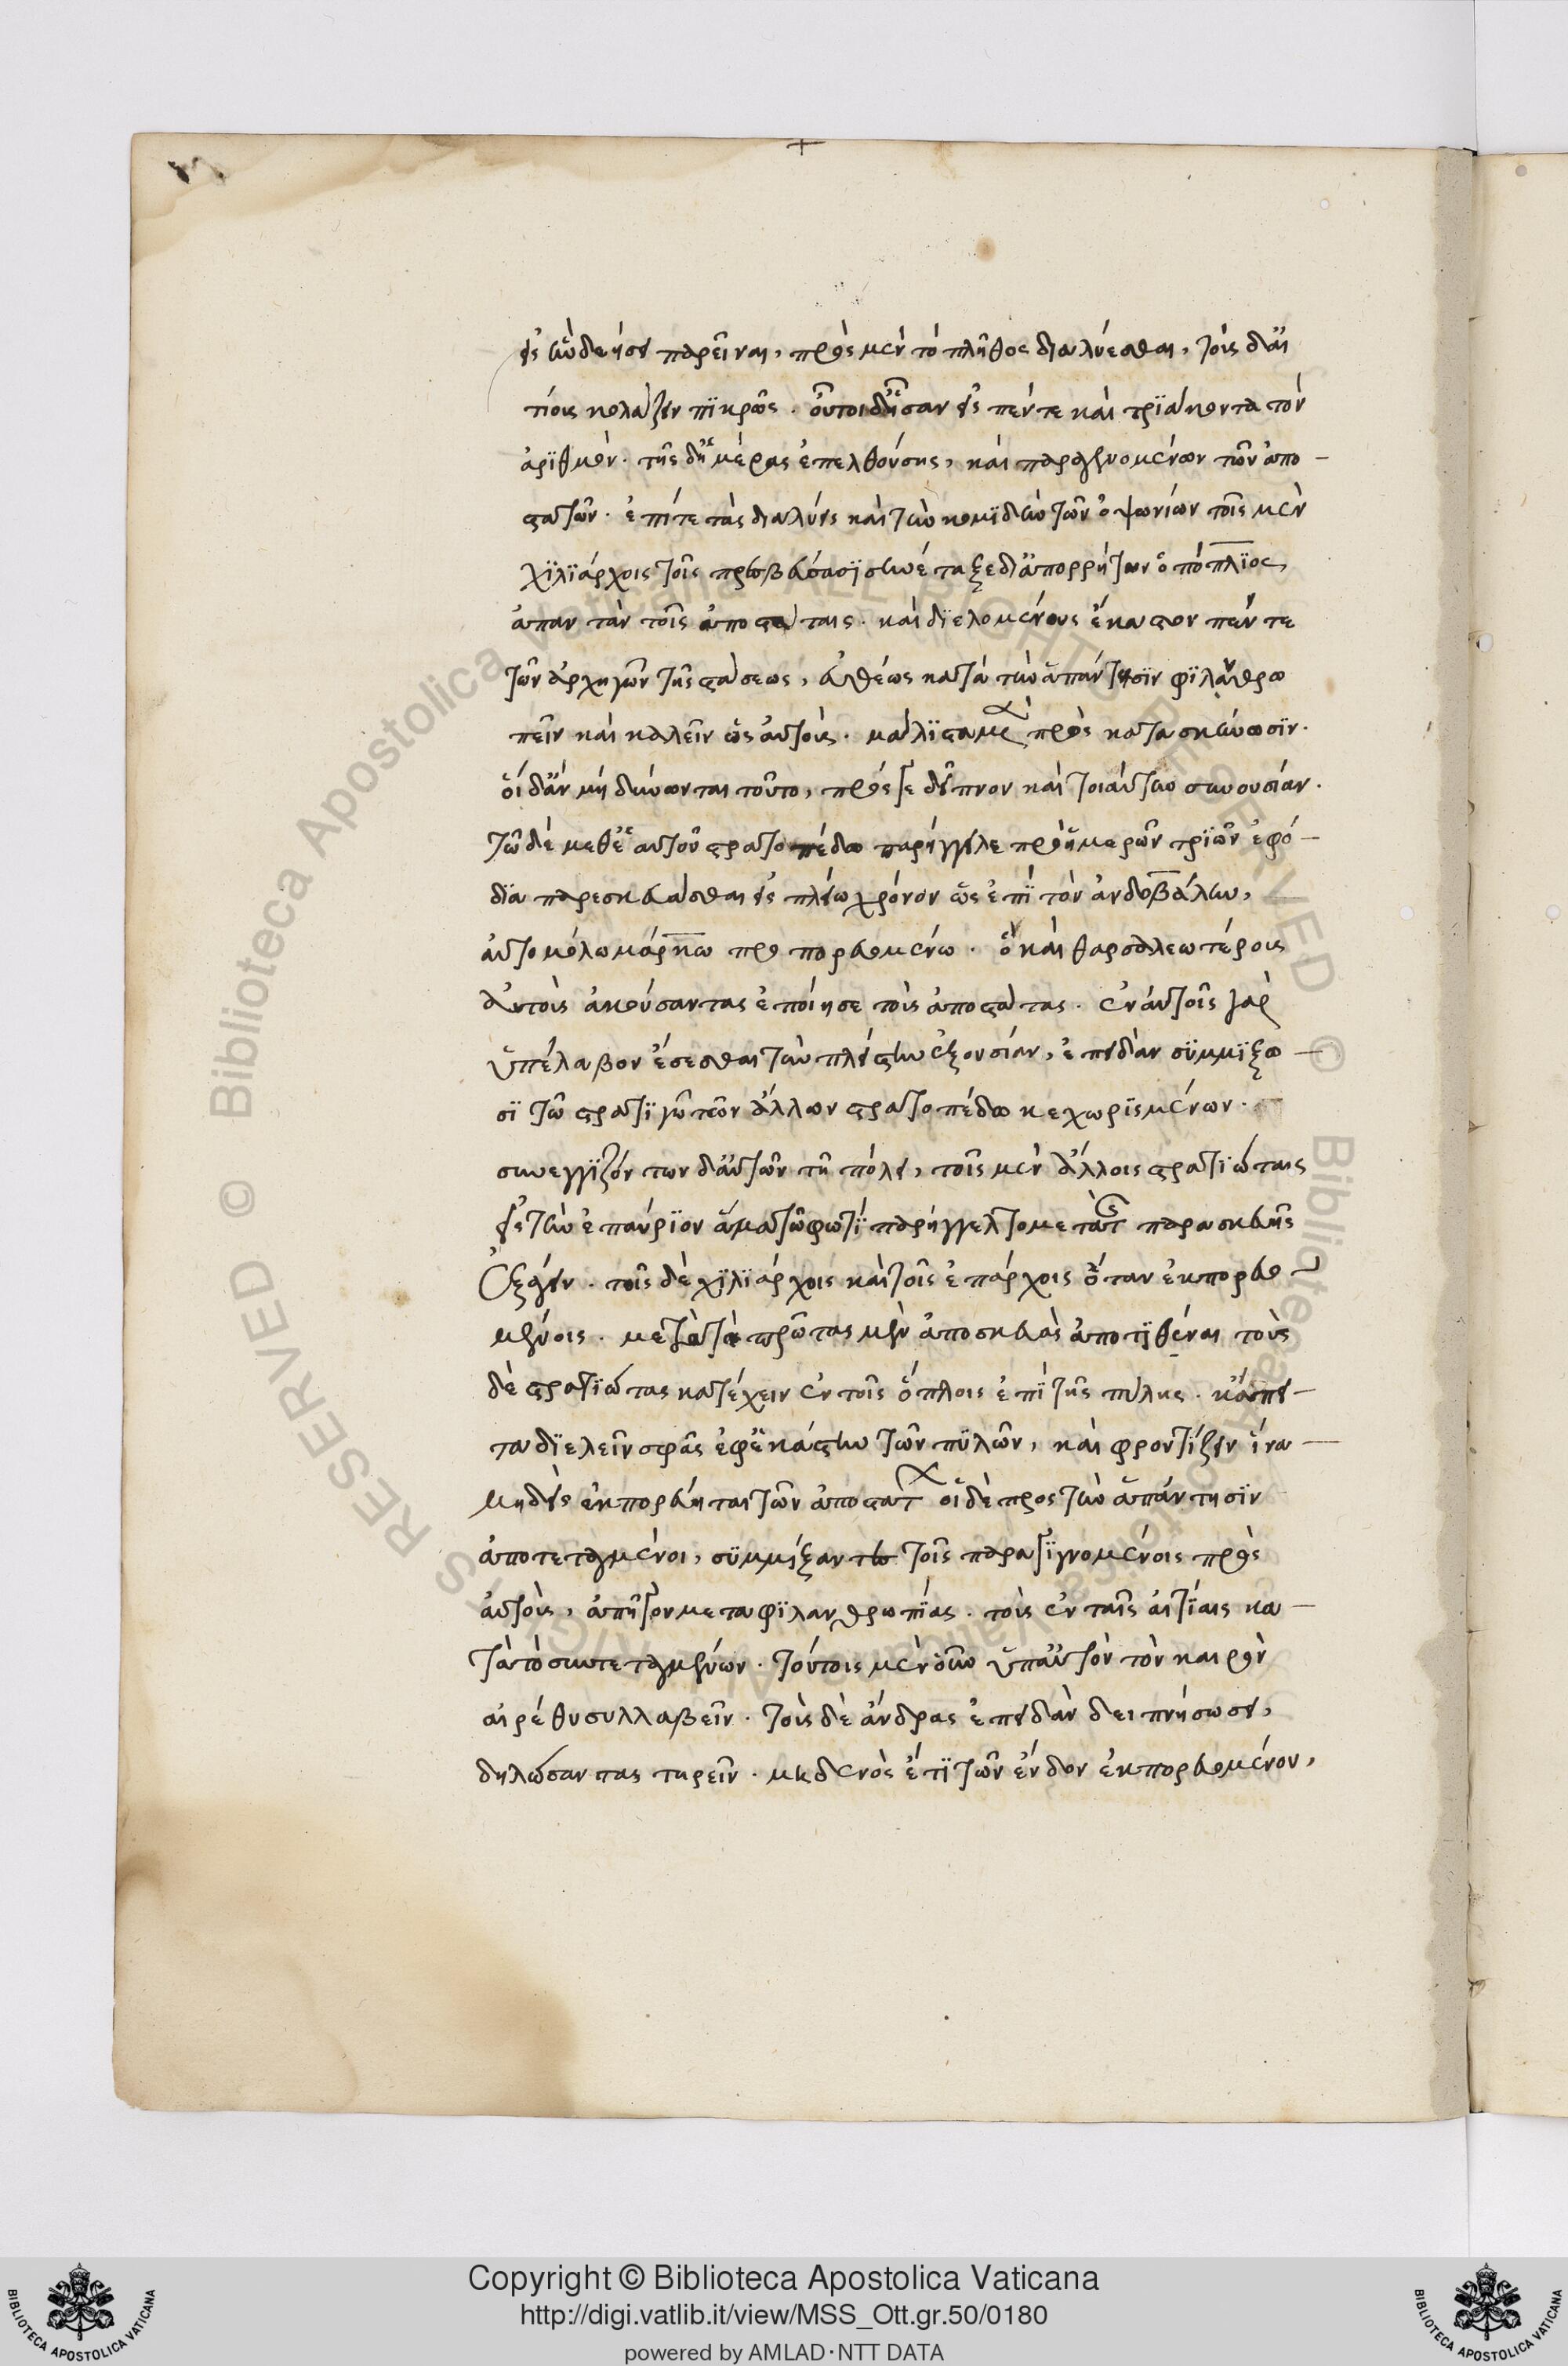 εἰς ἣν δεήσει παρεῖναι, πρὸς μὲν τὸ πλῆθος διαλύεσθαι, τοὺς δ' αἰ
τίους κολάζειν πϊκρῶς. οὗτοι δ' ἦσαν εἰς πέντε καὶ τρϊάκοντα τὸν
ἀρϊθμόν. τῆς δ' ἡμέρας ἐπελθούσης, καὶ παραγενομένων τῶν ἀπο-
στατῶν. ἐπί τε τὰς διαλύσεις καὶ τὴν κομϊδὴν τῶν ὀψωνίων τοῖς μὲν
χϊλϊάρχοις τοῖς πρεσβεύσασϊ συνέταξε δι' ἀπορρήτων ὁ πόπλϊος
ἀπαντὰν τοῖς ἀποστάταις. καὶ δϊελομένους ἕκαστον πέντε
τῶν ἀρχηγῶν τῆς στάσεως, εὐθέως κατὰ τὴν ἀπάντησϊν φϊλανθρω
πεῖν καὶ καλεῖν ὡς αὐτοὺς. μάλϊστα μὲν πρὸς κατασκήνωσϊν.
οἱ δ' ἂν μὴ δύνωνται τοῦτο, πρός γε δεῖπνον καὶ τοιαύτην συνουσίαν.
τῷ δὲ μεθ' ἑαυτοῦ στρατοπέδω παρήγγειλε πρὸ ἡμερῶν τρϊῶν ἐφό-
δϊα παρεσκευάσθαι εἰς πλείω χρόνον ὡς ἐπϊ τὸν ἀνδοβάλην,
αὐτομόλω μάρκω προπορευομένω. ὃ καὶ θαρσαλεωτέρους
αὐτοὺς ἀκούσαντας ἐποίησε τοὺς ἀποστάτας. ἐν αὐτοῖς γὰρ
ὑπέλαβον ἔσεσθαι τὴν πλείστην ἐξουσίαν, ἐπειδὰν σϋμμϊξω-
σϊ τῷ στρατϊγῷ τῶν ἄλλων στρατοπέδω κεχωρϊσμένων.
συνεγγϊζόντων δ' αὐτῶν τῇ πόλει, τοῖς μὲν ἄλλοις στρατϊώταις
εἰς τὴν ἐπαύρϊον ἅμα τῷ φωτϊ παρήγγελτο μετὰ τῆς παρασκευῆς
ἐξάγειν. τοῖς δὲ χϊλϊάρχοις καὶ τοῖς ἐπάρχοις ὅταν ἐκπορευο-
μένοις. μετὰ τὰ πρῶτας μὲν ἀποσκευὰς ἀποτϊθέναι τοὺς
δὲ στρατϊώτας κατέχειν ἐν τοῖς ὅπλοις ἐπϊ τῆς πύλης. κἄπει-
τα δϊελεῖν σφᾶς ἐφ' ἑκάστην τῶν πϋλῶν, καὶ φροντίζειν ἵνα-
μηδεὶς ἐκπορεύηται τῶν ἀποστατῶν οἱ δὲ προς τὴν ἀπάντησϊν
ἀποτεταγμένοι, σϋμμίξαντες τοῖς παραγϊγνομένοις πρὸς
αὐτοὺς, ἀπῆγον μετα φϊλανθρωπίας. τοὺς ἐν ταῖς αἰτϊαις κα-
τὰ τὸ συντεταγμένων. τούτοις μὲν οὖν ὑπ' αὐτὸν τὸν καιρὸν
αιρέθη συλλαβεῖν. τοὺς δὲ ἄνδρας ἐπειδὰν δειπνήσωσι,
δηλώσαντας τηρεῖν. μηδενὸς ἔτϊ τῶν ἔνδον ἐκπορευομένον,
Copyright © Biblioteca Apostolica Vaticana
http://digi.vatlib.it/view/MSS_Ott.gr.50/0180
powered by AMLAD·NTT DATA